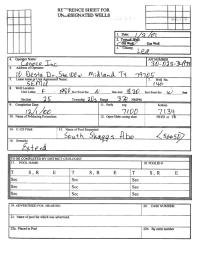 REFERENCE SHEET FOR
UNDESIGNATED WELLS
1. Date:
2. Type Well:
Oil Well Gas Well
3. County:
Lea
4. Operator Name
API NUMBER
Conoco Inc.
30-025-
5. Address of Operator
10 Desta Dr. Ste 100W Midland Tx 79705
7. Lease Name or Unit Agreement Name
8. Well No.
SEMU
8. Well Location
Unit Letter F Feet From the N line and Feet From the W line
Section 25 Township 20s Range 37E NMPM
9. Completion Date
11. Perfs top bottom
12/1/00
7100 7134
10. Name of Producing Formation
12. Open Hole casing shoe PBTD or TD
14. C-123 Filed:
15. Name of Pool Requested:
South Skaggs Abo
16. Remarks:
Extend
TO BE COMPLETED BY DISTRICT GEOLOGIST
17. POOL NAME
18. POOL ID #
T S, R E T S, R E T S, R E
Sec Sec Sec
Sec Sec Sec
Sec Sec Sec
19. ADVERTISED FOR HEARING
20. CASE NUMBER
21. Name of pool for which was advertised.
22a. Placed in Pool
22b. By order number